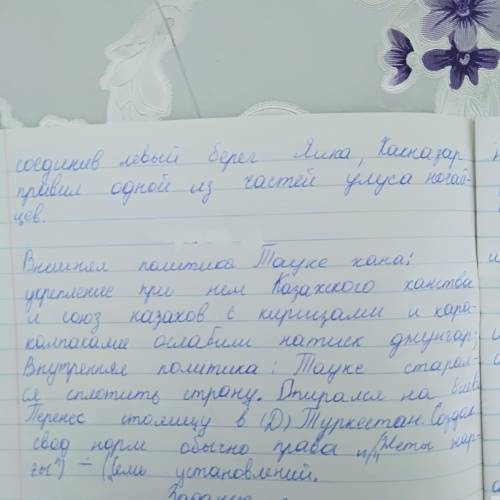 соединив левый берег Яика, Хакназар
правил одной из частей улуса ногай-
цев.
Внешняя политика Тауке хана:
укрепление при нем Казахского ханства
и союз казахов с киргизами и кара-
калпаками ослабили натиск джунгар;
Внутренняя политика: Тауке старал-
ся сплотить страну. Опирался на биев
Перенес столицу в (Д) Туркестан. Создал
свод норм обычно права п/н "Жеты жар-
ғы") - (Семь установлений.
Задание